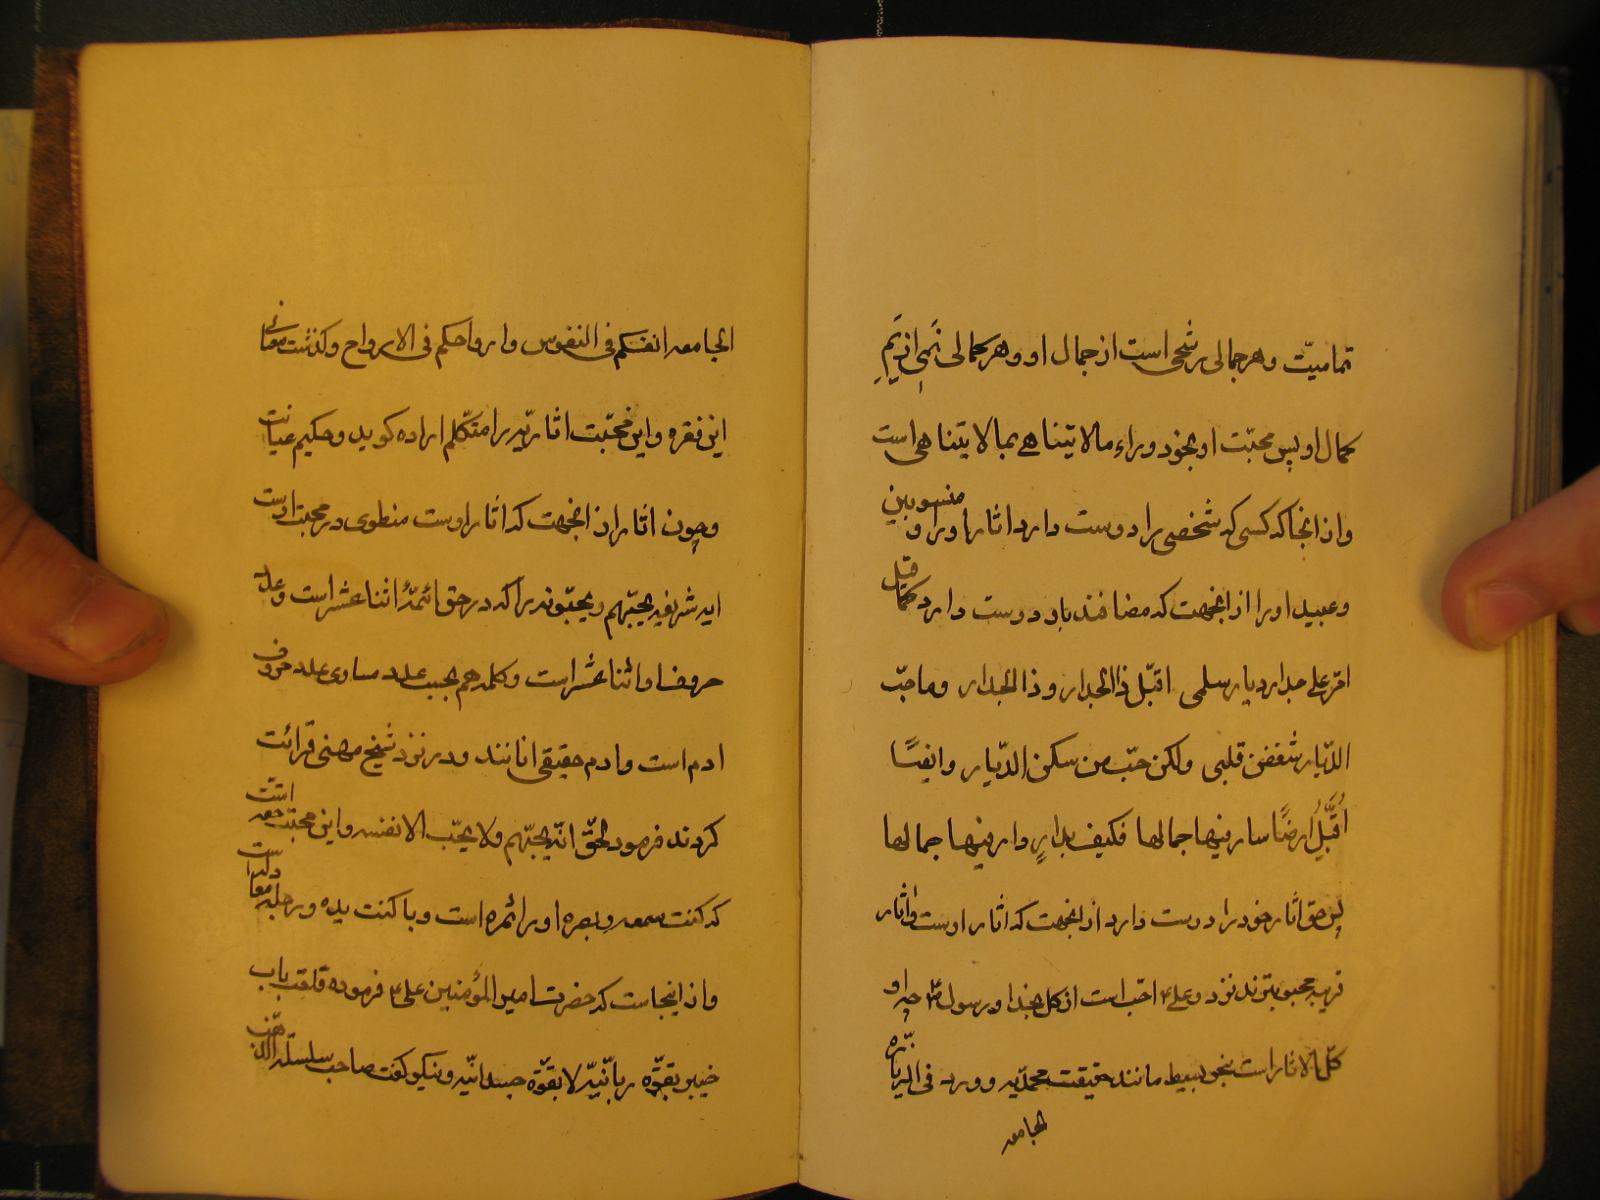 تمامیّت و هر جمالی رشحی است از جمال او و هر کمالی نَمی از یَمِ
کمال او پس محبّت او بخود وراء ما لا یتناهی بما لا یتناهی است
و از انجا که کسی که شخصی را دوست دارد اثار او را و منسوبین
و عبید او را از انجهت که مضافند باو دوست دارد کما قیل
امرّ علی جدار دیار سلمی اقبّل ذا الجدار و ذا الجدار و ما حبّ
الدّیار شغفن قلبی ولکن حبّ من سکن الدّیار وایضًا
اُقَبِّلُ ارضًا سار فیها جمالها فکیف بدارٍ دار فیها جمالها
پس حق اثار خود را دوست دارد از انجهت که اثار اوست و اثار
قریبه محبوبترند نزد و علی ع احبّ است از کل بخدا و رسول ص چه او
کلّ الاثار است بنحو بسیط مانند حقیقت محمدیه و ورد فی الزیاره
الجامعه
الجامعه انفسکم فی النفوس و ارواحکم فی الارواح و کذشت معنای
این فقره و این محبّت اثاریّه را متکلم اراده کوید و حکیم عنایت
و چون اثار از انجهت که اثار اوست منطوی در محبت اوست
ایه شریفه یحبّهم و یحبّونه را که در حق ائمّهٔ اثنا عشر است و عدد
حروف او اثنا عشر است و کلمه هم بحسب عدد مساوی عدد حروف
ادم است و ادم حقیقی انانند و در نزد شیخ مهنی قرائت
کردند فرمود لحقّ انّه یحبّهم و لا یحبّ الا نفسه و این محبّت حقه است
که کنت سمعه و بصره او را ثمره است و با کنت یده و رجله معا
و از اینجاست که حضرت امیر المؤمنین علی ع فرموده قلعت باب
خیبر بقوّه ربانّیّه لا بقوّه جسدانیّه و نیکو کفت صاحب سلسلة الذهب